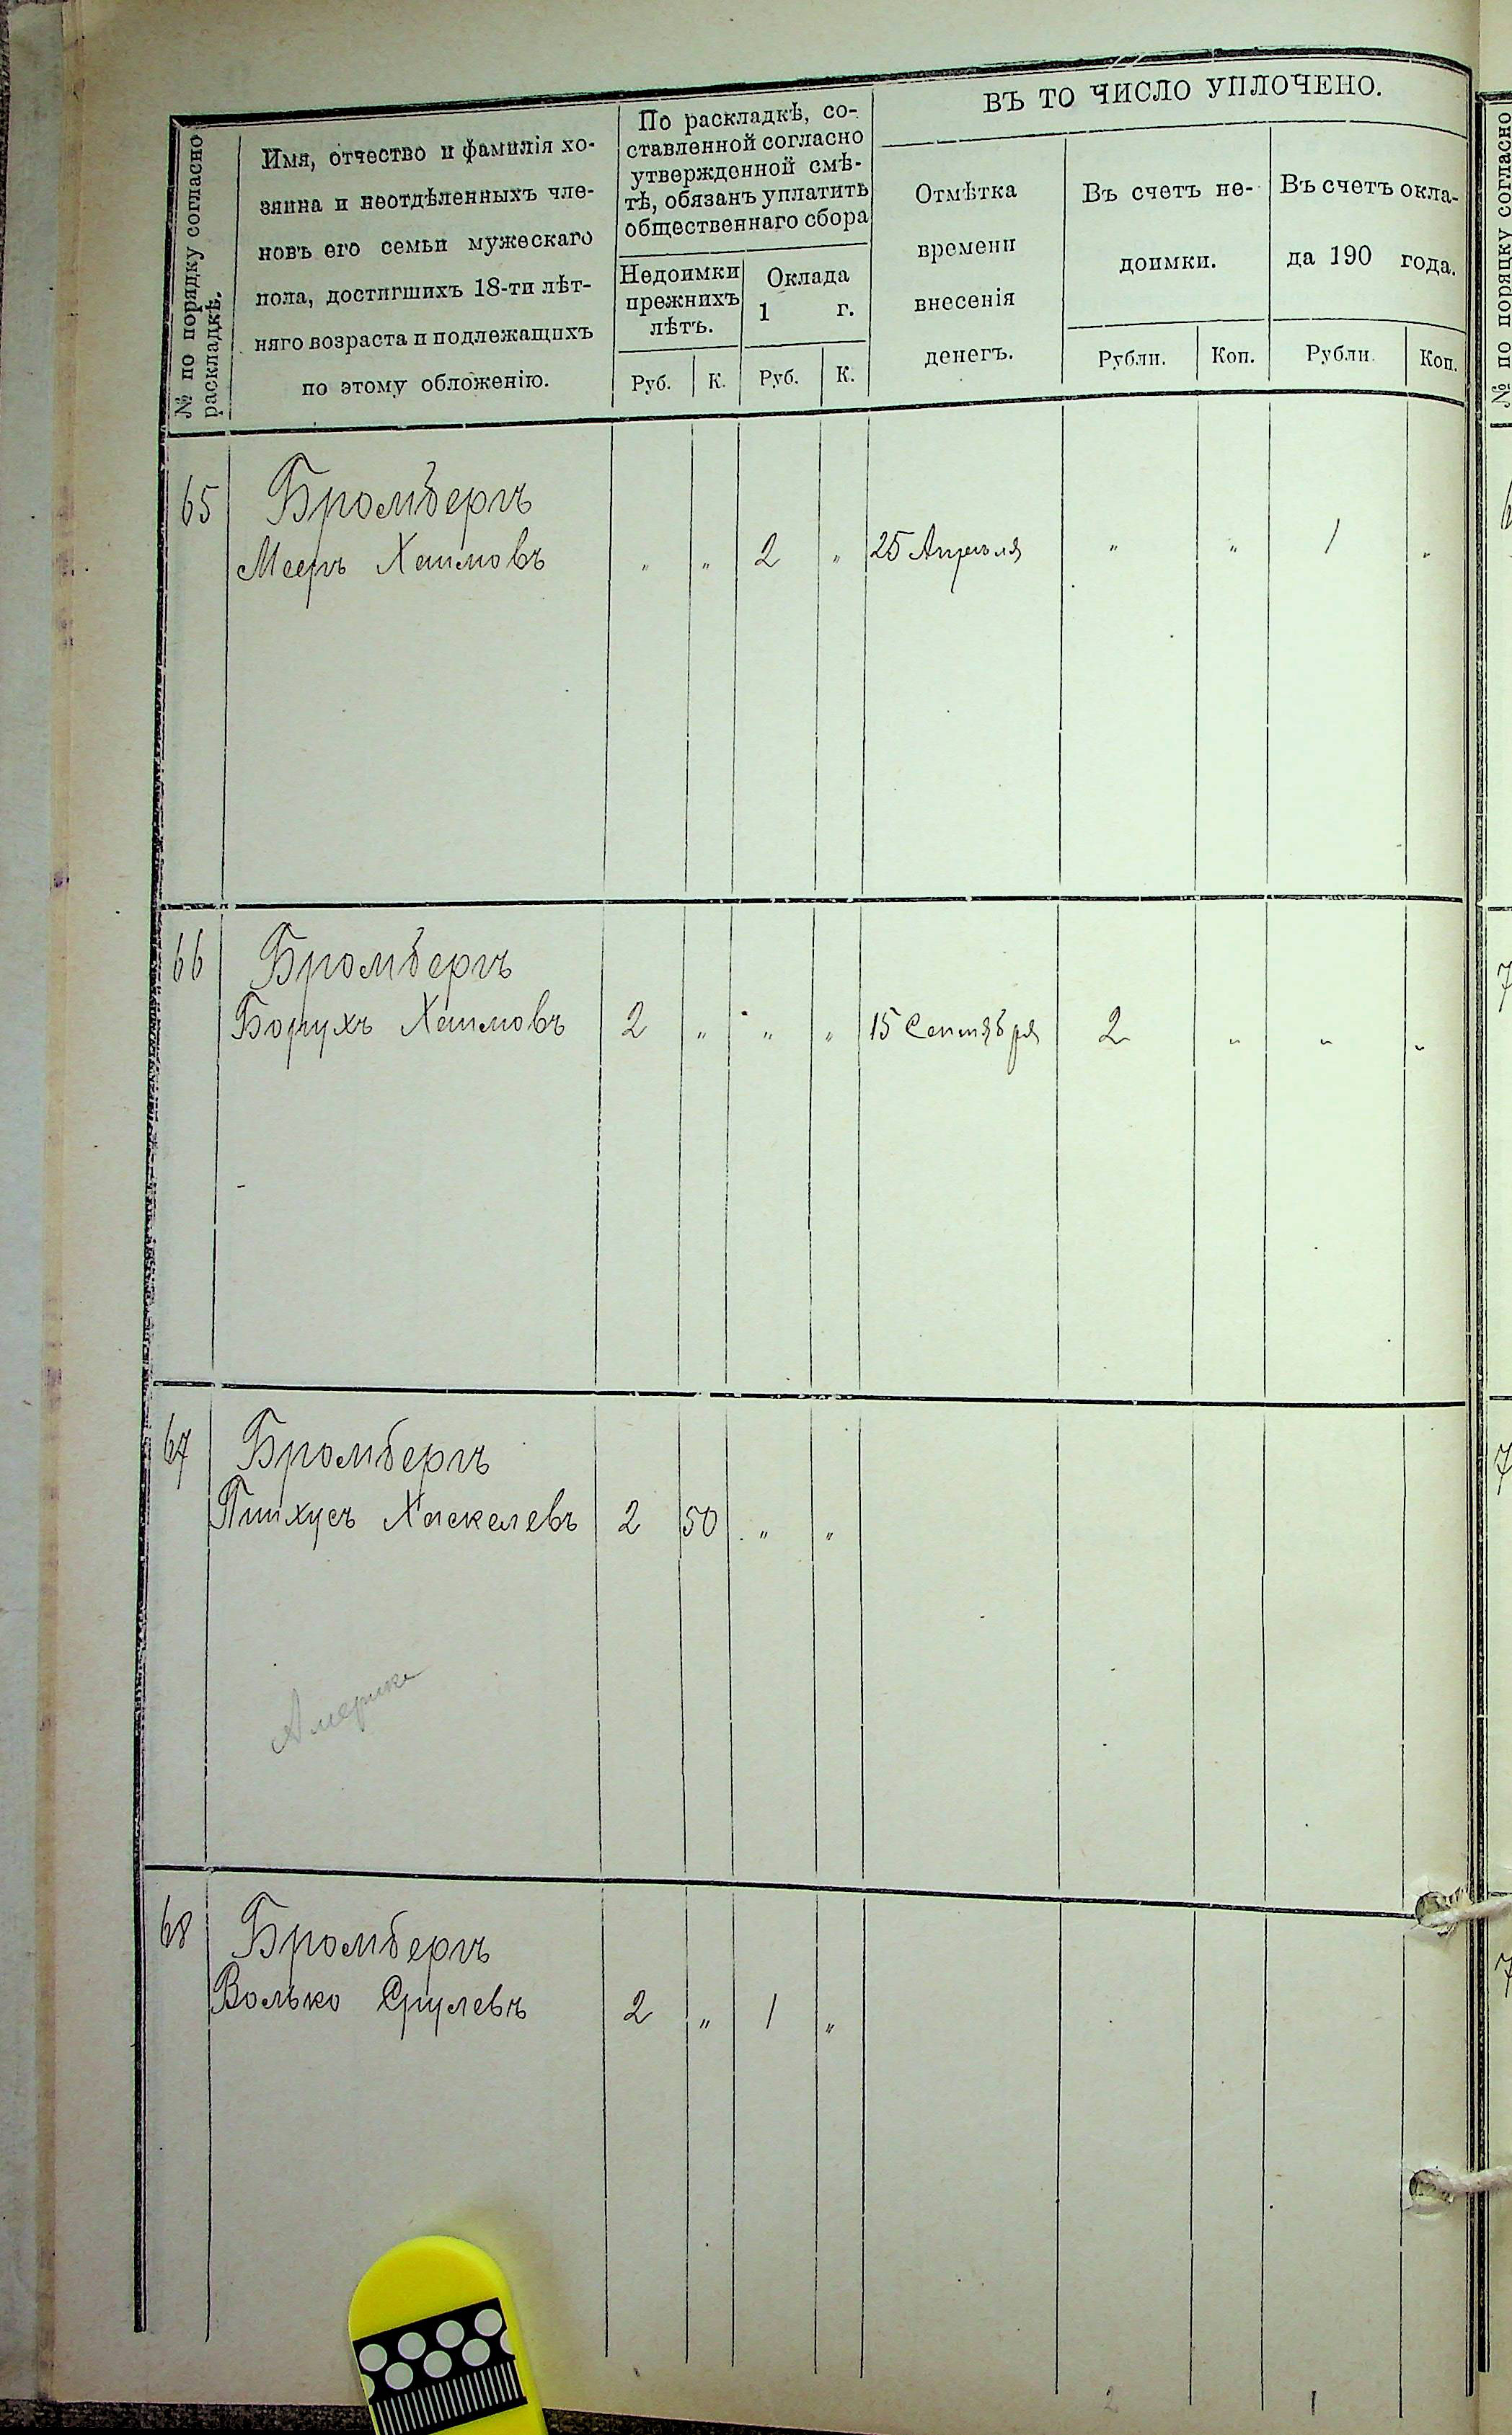 № по порядку согласно
раскладкѣ.
Имя, отчество и фамилія хо-
зяина и неотдѣленныхъ чле-
новъ его семьи мужескаго
пола, достигшихъ 18-ти лѣт-
няго возраста и подлежащихъ
по этому обложенію.
По раскладкѣ, со-
ставленной согласно
утвержденной смѣ-
тѣ, обязанъ уплатить
общественнаго сбора
Недоимки
прежнихъ
лѣтъ.
Оклада
1 г.
Руб. К. Руб. К.
ВЪ ТО ЧИСЛО УПЛОЧЕНО.
Отмѣтка
времени
внесенія
денегъ.
Въ счетъ не-
доимки.
Въ счетъ окла-
да 190 года.
Рубли. Коп. Рубли. Коп.
65 Бромбергъ
Мееръ Хаимовъ " " 2 " 25 Апрѣля " " 1 "
66 Бромбергъ
Борухъ Хаимовъ 2 " " " 15 Сентября 2 " " "
67 Бромбергъ
Пинхусъ Хаскелевъ 2 50 " "
Америка
68 Бромбергъ
Волько Срулевъ 2 " 1 "
2 1
№ по порядку согласно